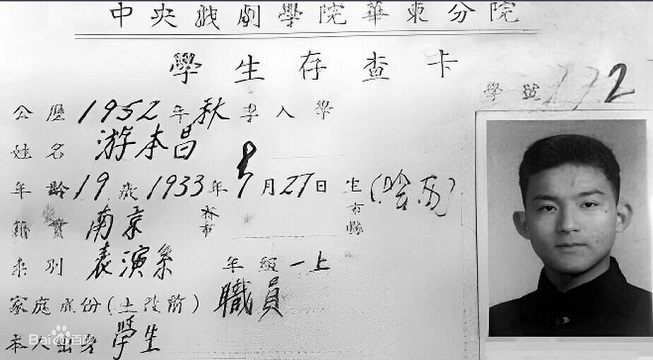 中央戏劇學院華東分院
學生存查卡
學號 172
公曆1952年秋季入學
姓名 游本昌
年齡19歲1933年9月27日生(陰历)
市縣
籍貫 南京 省市
系別 表演系 年級一上
家庭成份(土改前) 職員
本人出身 學生
Bai百科